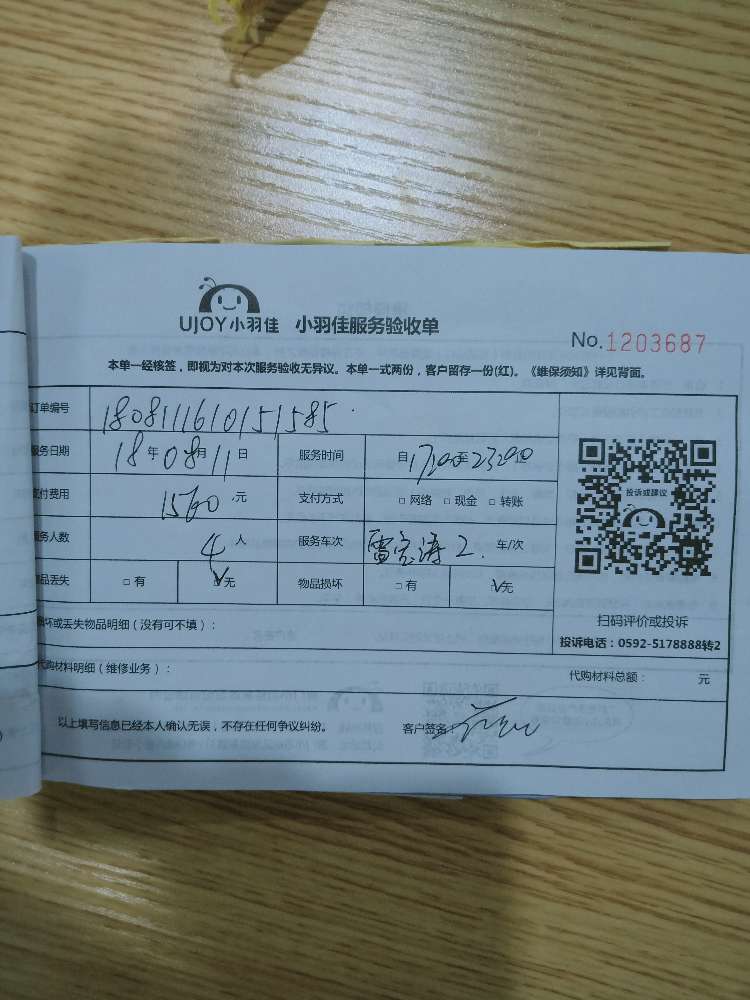 UJOY小羽佳 小羽佳服务验收单
No.1203687
本单一经核签，即视为对本次服务验收无异议。本单一式两份，客户留存一份(红)。《维保须知》详见背面。
订单编号 1808111610151585
服务日期 18年08月11日 服务时间 自17:00至23:00
支付费用 1560元 支付方式 □网络 □现金 □转账
服务人数 4人 服务车次 2 车/次
物品丢失 □有 ☑无 物品损坏 □有 ☑无
投诉或建议
扫码评价或投诉
投诉电话：0592-5178888转2
损坏或丢失物品明细（没有可不填）：
代购材料明细（维修业务）： 代购材料总额： 元
以上填写信息已经本人确认无误，不存在任何争议纠纷。 客户签名：